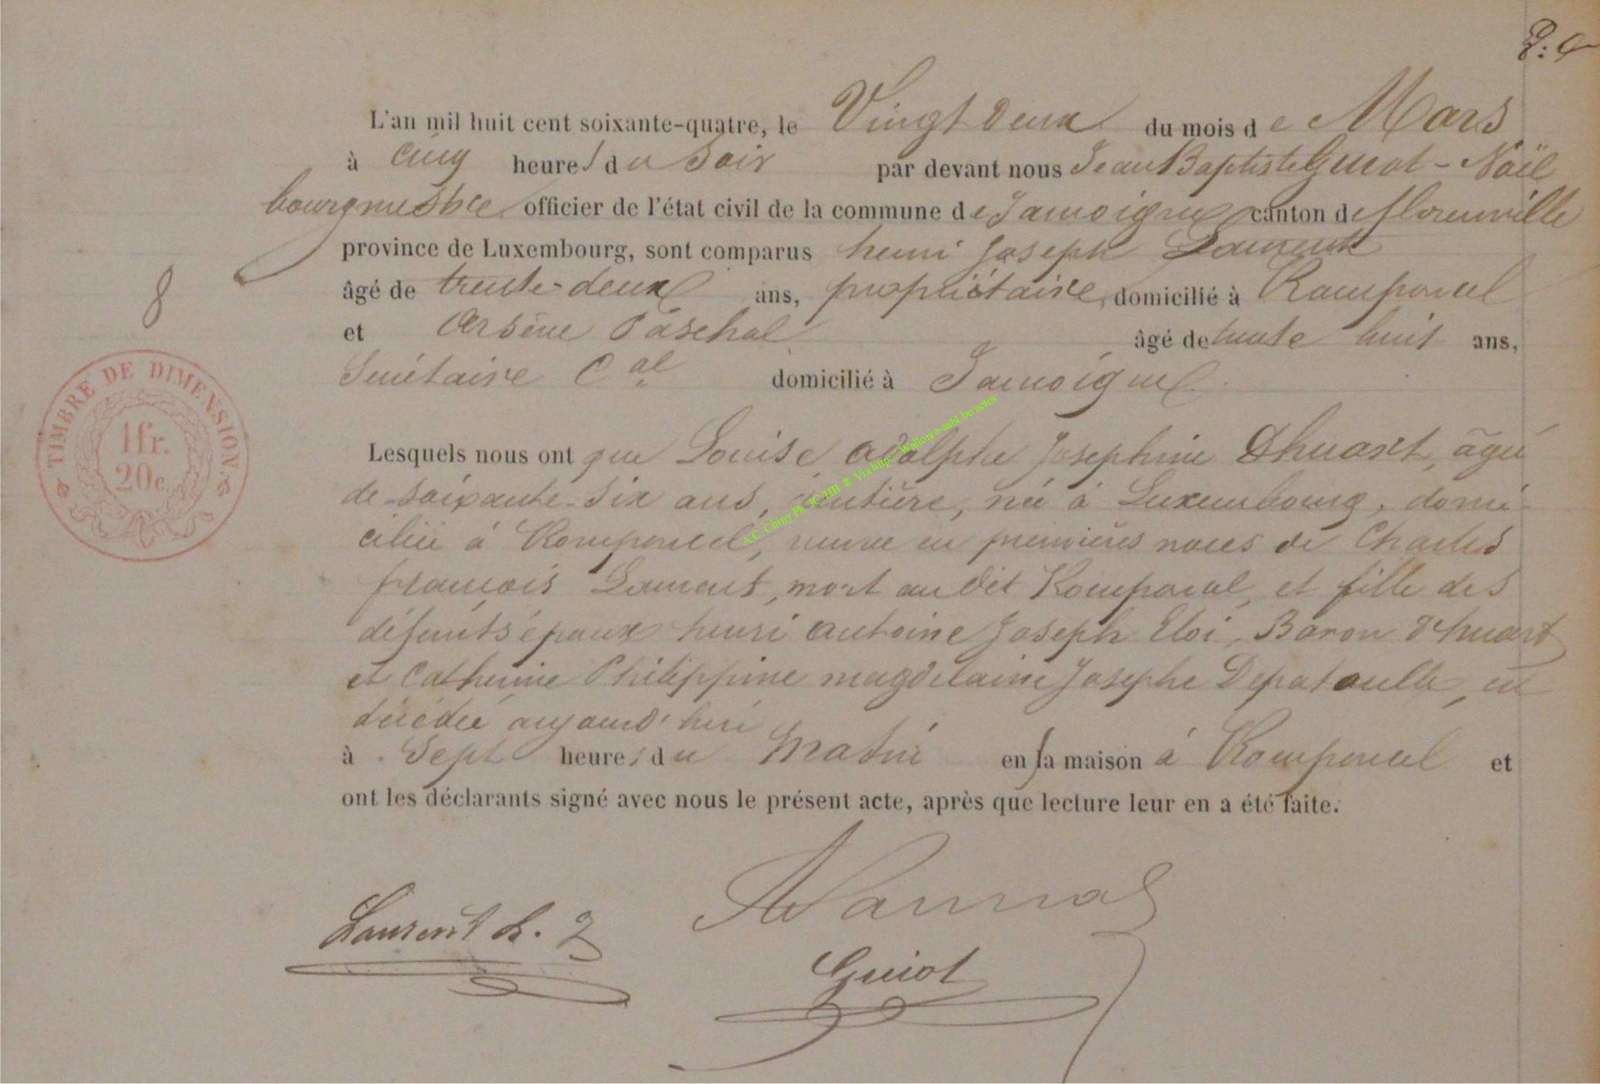 L'an mil huit cent soixante-quatre, le Vingt Deux du mois de Mars
à cinq heures du Soir par devant nous Jean Baptiste Guiot-Noël
bourgmestre officier de l'état civil de la commune de Jamoigne canton de florenville
province de Luxembourg, sont comparus henri Joseph Laurent
âgé de trente-deux ans, propriétaire, domicilié à Romponcel
et Arsène Paschal âgé de trente huit ans,
Secrétaire Cal domicilié à Jamoigne
Lesquels nous ont que Louise Adolphe Josephine Dhuart, âgée
de soixante-six ans, rentière, née à Luxembourg, domi-
ciliée à Romponcel, veuve en premières noces de Charles
françois Laurent, mort au dit Romponcel, et fille des
défunts époux henri antoine Joseph Eloi, Baron d'huart
et Catherine Philippine magdelaine Josephe Depatoulle, est
décédée aujourd'hui
à Sept heures du Matin en sa maison à Romponcel et
ont les déclarants signé avec nous le présent acte, après que lecture leur en a été faite.
8
TIMBRE DE DIMENSION
1fr.
20c.
Laurent h. J
Guiot